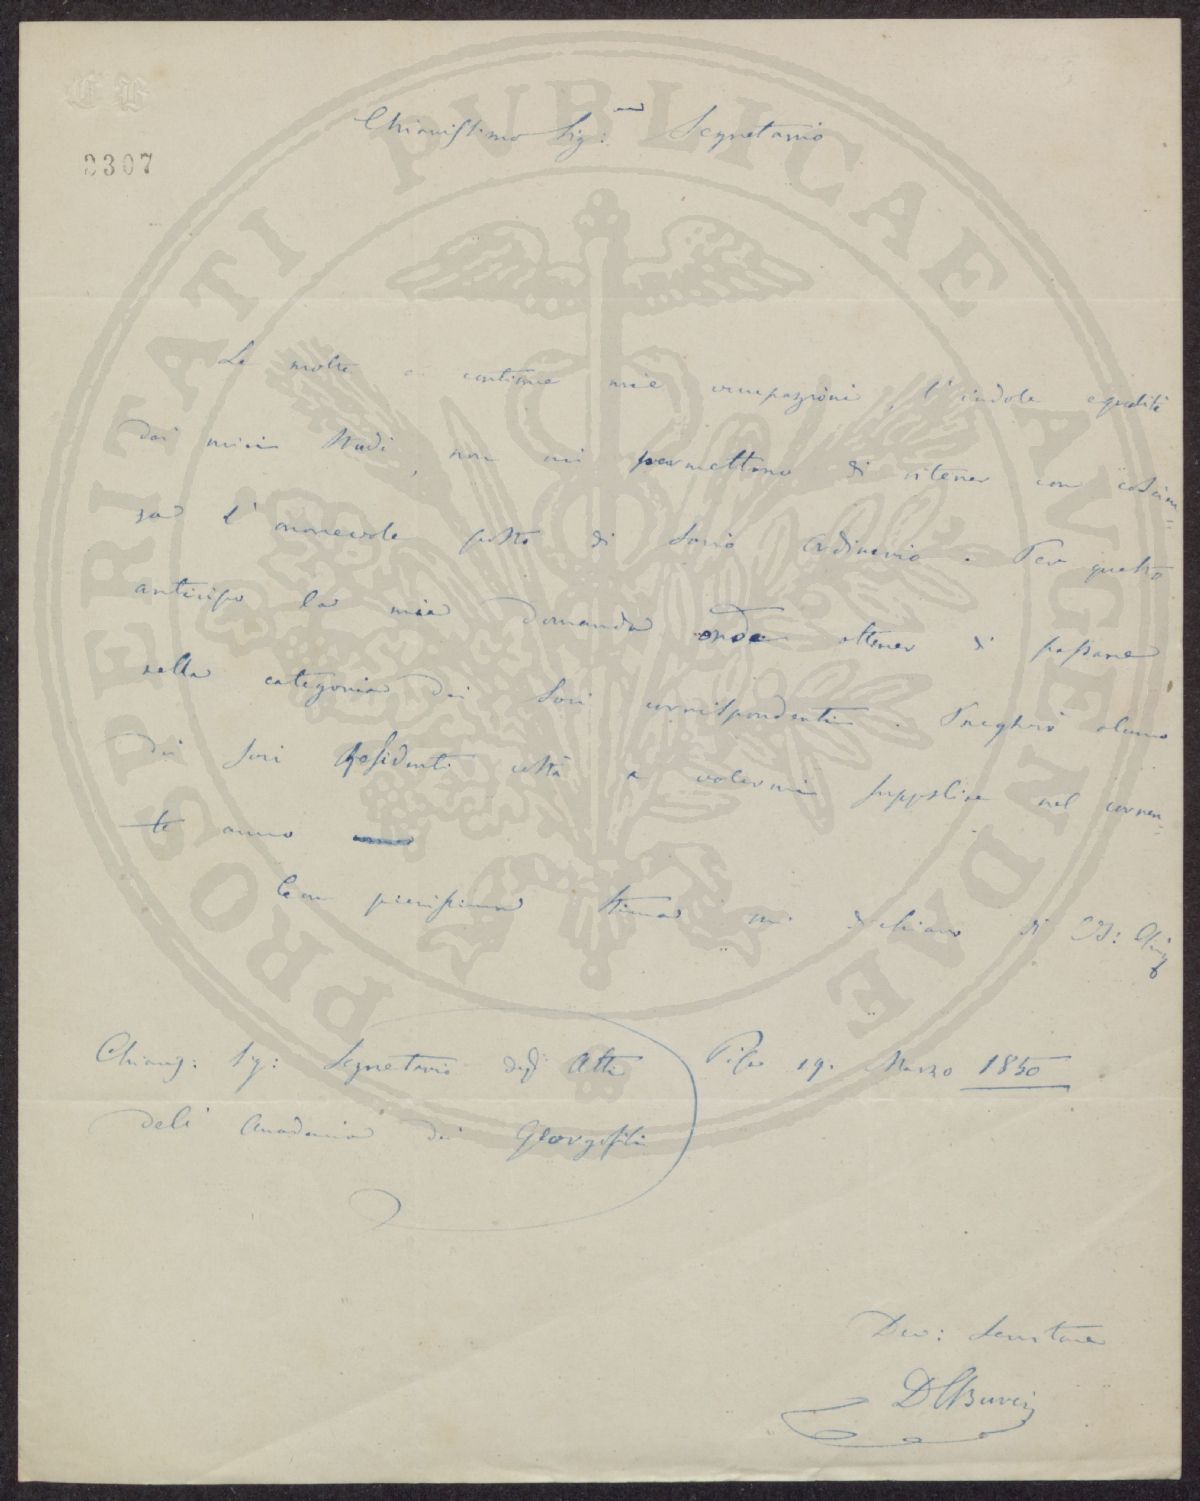 C B
2307
PROSPERITATI PUBLICAE AVGENDAE
Chiarissimo Sig: Segretario
Le molte e continue mie occupazioni, l'indole e qualità
dei miei studi, non mi permettono di ritener con coscien=
za l'onorevole posto di Socio Ordinario. Per questo
anticipo la mia domanda onde ottener di passare
nella categoria dei Soci corrispondenti. Pregherò alcuno
dei soci Residenti costà a volermi supplire nel corren=
te anno
Con pienissima stima mi dichiaro di VS: Chiar
Chiariss: Sig: Segretario degli Atti
dell' Accademia dei Georgofili
Pisa 19. Marzo 1850
Dev: Servitore
D C Burci